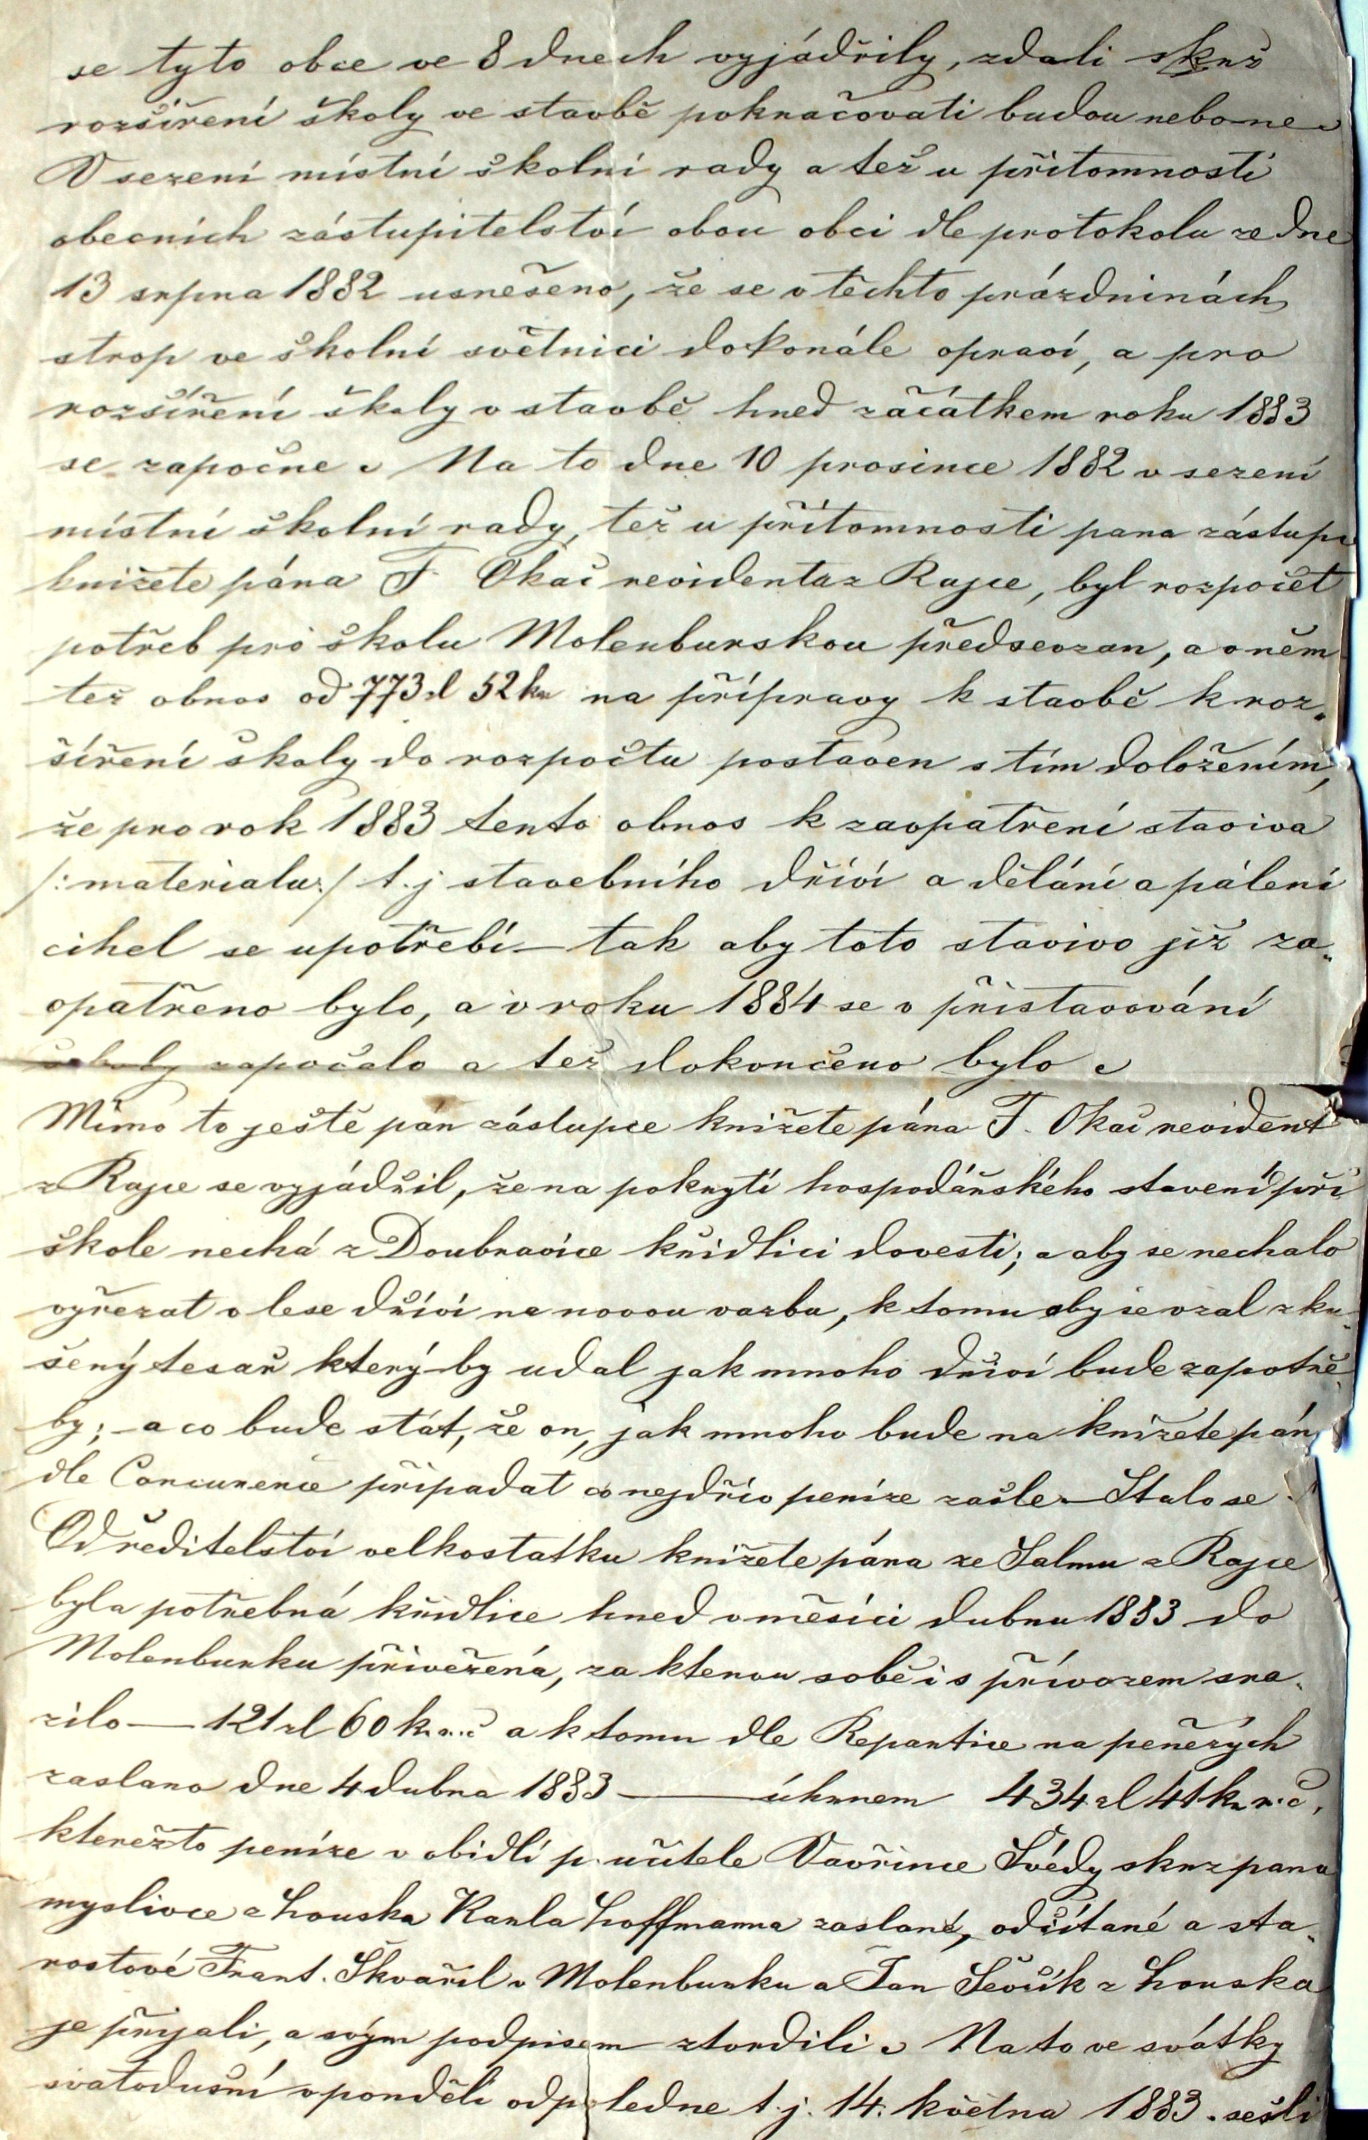 se tyto obce ve 8 dnech vyjádřily, zdali skrz
rozšíření školy ve stavbě pokračovati budou nebo ne.
V sezení místní školní rady a též u přítomnosti
obecních zástupitelství obou obci dle protokolu ze dne
13 srpna 1882 usnešeno, že se v těchto prázdninách
strop ve školní světnici dokonále opraví, a pro
rozšíření školy v stavbě hned začátkem roku 1883
se započne. Na to dne 10 prosince 1882 v sezení
místní školní rady, též u přítomnosti pana zástupc
knížete pána F. Okáč revidenta z Rajce, byl rozpočet
potřeb pro školu Molenburskou předsevzan, a v něm
též obnos od 773 zl 52 kr na přípravy k stavbě k roz-
šíření školy do rozpočtu postaven s tím doložením,
že pro rok 1883 tento obnos k zaopatření staviva
/: materialu :/ t. j stavebního dříví a dělání a pálení
cihel se upotřebí – tak aby toto stavivo již za-
opatřeno bylo, a v roku 1884 se v přistavování
školy započalo a též dokončeno bylo.
Mimo to ještě pán zástupce knížete pána F. Okáč revident
z Rajce se vyjádřil, že na pokrytí hospodářského stavení při
škole nechá z Doubravice křidlici dovesti; a aby se nechalo
vyřezat v lese dříví na novou vazbu, k tomu aby se vzal zku-
šený tesař který by udal jak mnoho dříví bude zapotře-
by; – a co bude stát, že on, jak mnoho bude na knížete pán
dle Concurence připadat co nejdřív peníze zašle – Stalo se.
Od ředitelství velkostatku knížete pána ze Salmu z Rajce
byla potřebná křidlice hned v měsíci dubnu 1883 do
Molenburku přivežená, za kterou sobě i s přívozem sra-
zilo — 121 zl 60 kr. r. č a k tomu dle Repartice na peněžých
zaslano dne 4 dubna 1883 —— úhrnem 434 zl 41 kr r. č,
kterežto peníze v obidlí p. učitele Vavřince Švédy skrz pana
myslivce z Houska Karla Hoffmanna zaslané, odčítané a sta-
rostové Frant. Škvařil v Molenburku a Jan Ševčík z Houska
je přijali, a svým podpisem ztvrdili. Na to ve svátky
svatodušní v pondělí odpoledne t. j. 14. května 1883. sešli